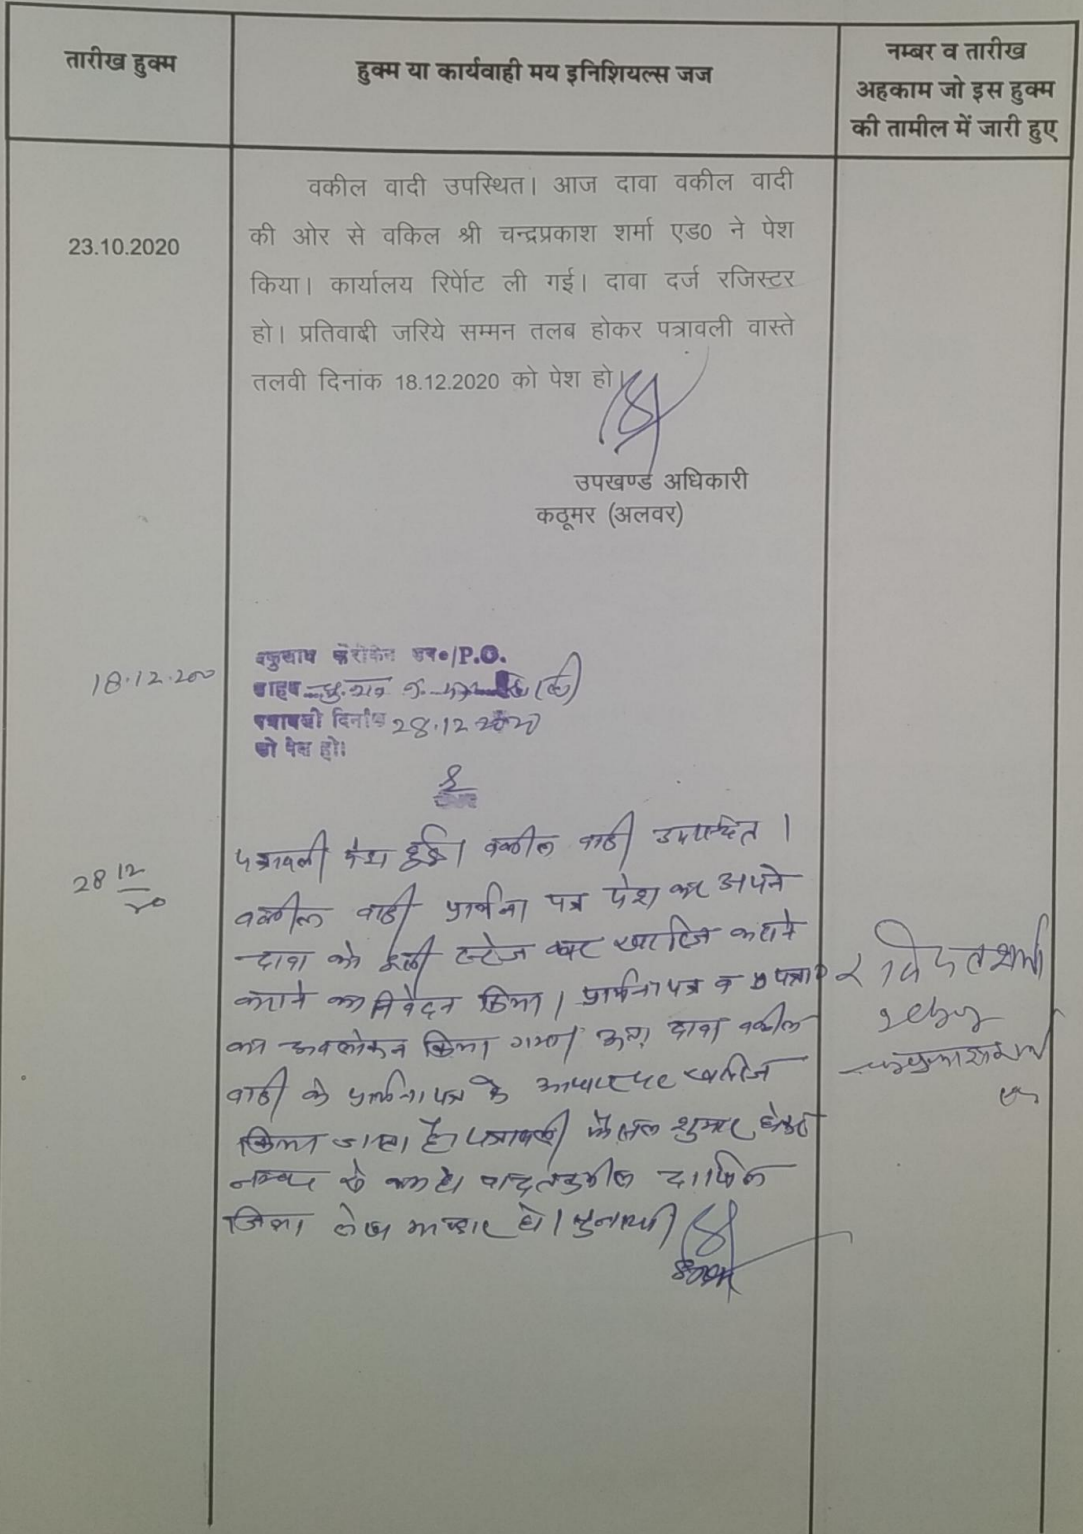 तारीख हुक्म
हुक्म या कार्यवाही मय इनिशियल्स जज
नम्बर व तारीख
अहकाम जो इस हुक्म
की तामील में जारी हुए
23.10.2020
वकील वादी उपस्थित। आज दावा वकील वादी
की ओर से वकिल श्री चन्द्रप्रकाश शर्मा एड0 ने पेश
किया। कार्यालय रिर्पोट ली गई। दावा दर्ज रजिस्टर
हो। प्रतिवादी जरिये सम्मन तलब होकर पत्रावली वास्ते
तलवी दिनांक 18.12.2020 को पेश हो।
उपखण्ड अधिकारी
कठूमर (अलवर)
18.12.200
P.O.
दिनांक 28.12.2020
को पेश हो।
28 12/20
पत्रावली पेश हुई। वकील वादी उपस्थित।
वकील वादी प्रार्थना पत्र पेश कर अपने
दावा को इसी स्टेज पर खारिज कराने
का निवेदन किया। प्रार्थना पत्र व पत्रा0
का अवलोकन किया गया। अतः दावा वकील
वादी के प्रार्थना पत्र के आधार पर खारिज
किया जाता है। पत्रावली फैसल शुमार होकर
नम्बर से कम हो। बाद तकमील दाखिल